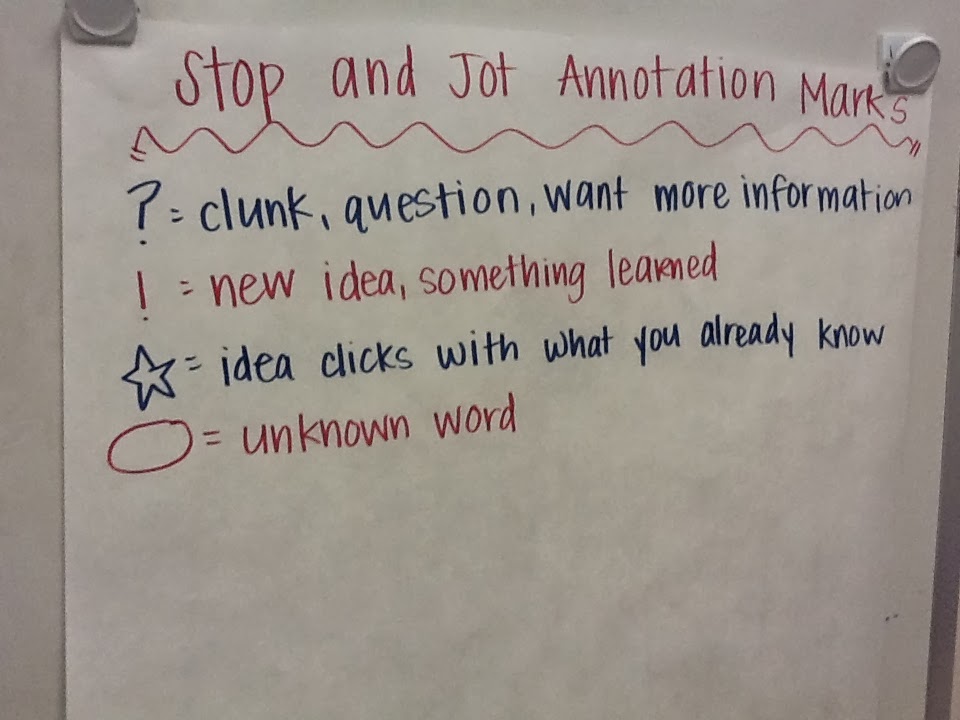 Stop and Jot Annotation Marks
? = clunk, question, want more information
! = new idea, something learned
☆ = idea clicks with what you already know
○ = unknown word